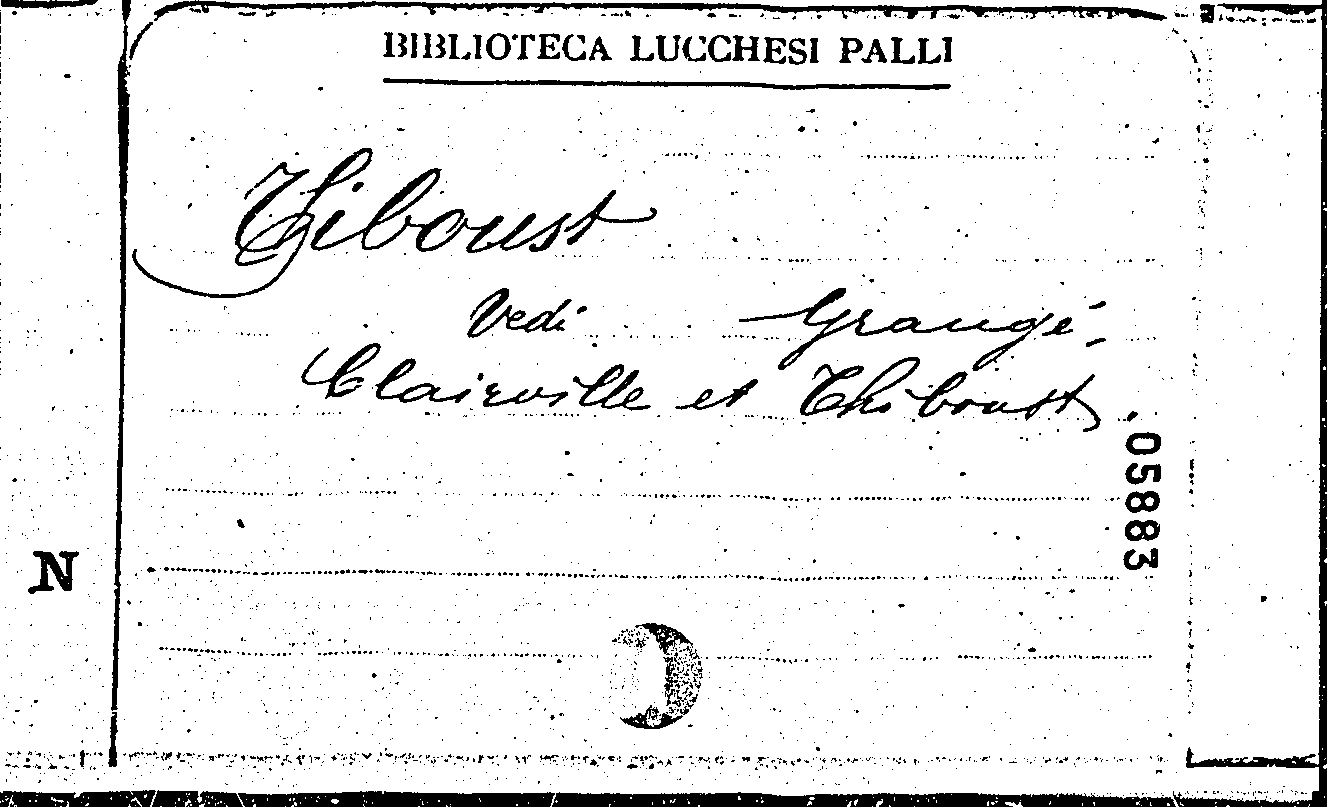 BIBLIOTECA LUCCHESI PALLI
Tiboust
Vedi Grangé,
Clairville et Thiboust.
05883
N